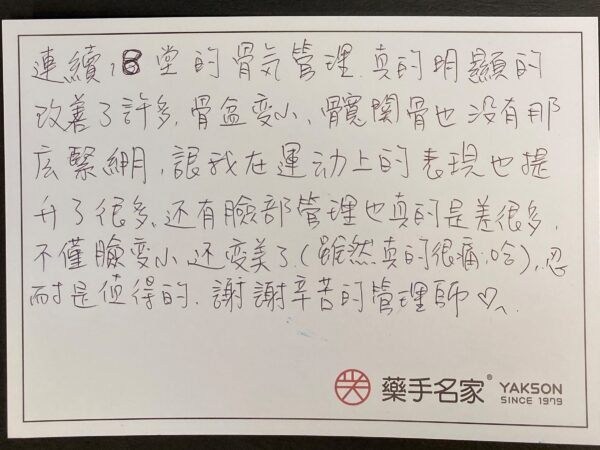 連續18堂的骨気管理,真的明顯的
改善了許多,骨盆变小,髖関骨也没有那
広緊綳,讓我在運动上的表現也提
升了很多,还有臉部管理也真的是差很多,
不僅臉变小还变美了(雖然真的很痛,哈),忍
耐是值得的,謝謝辛苦的管理師♡^.
藥手名家® YAKSON
SINCE 1979